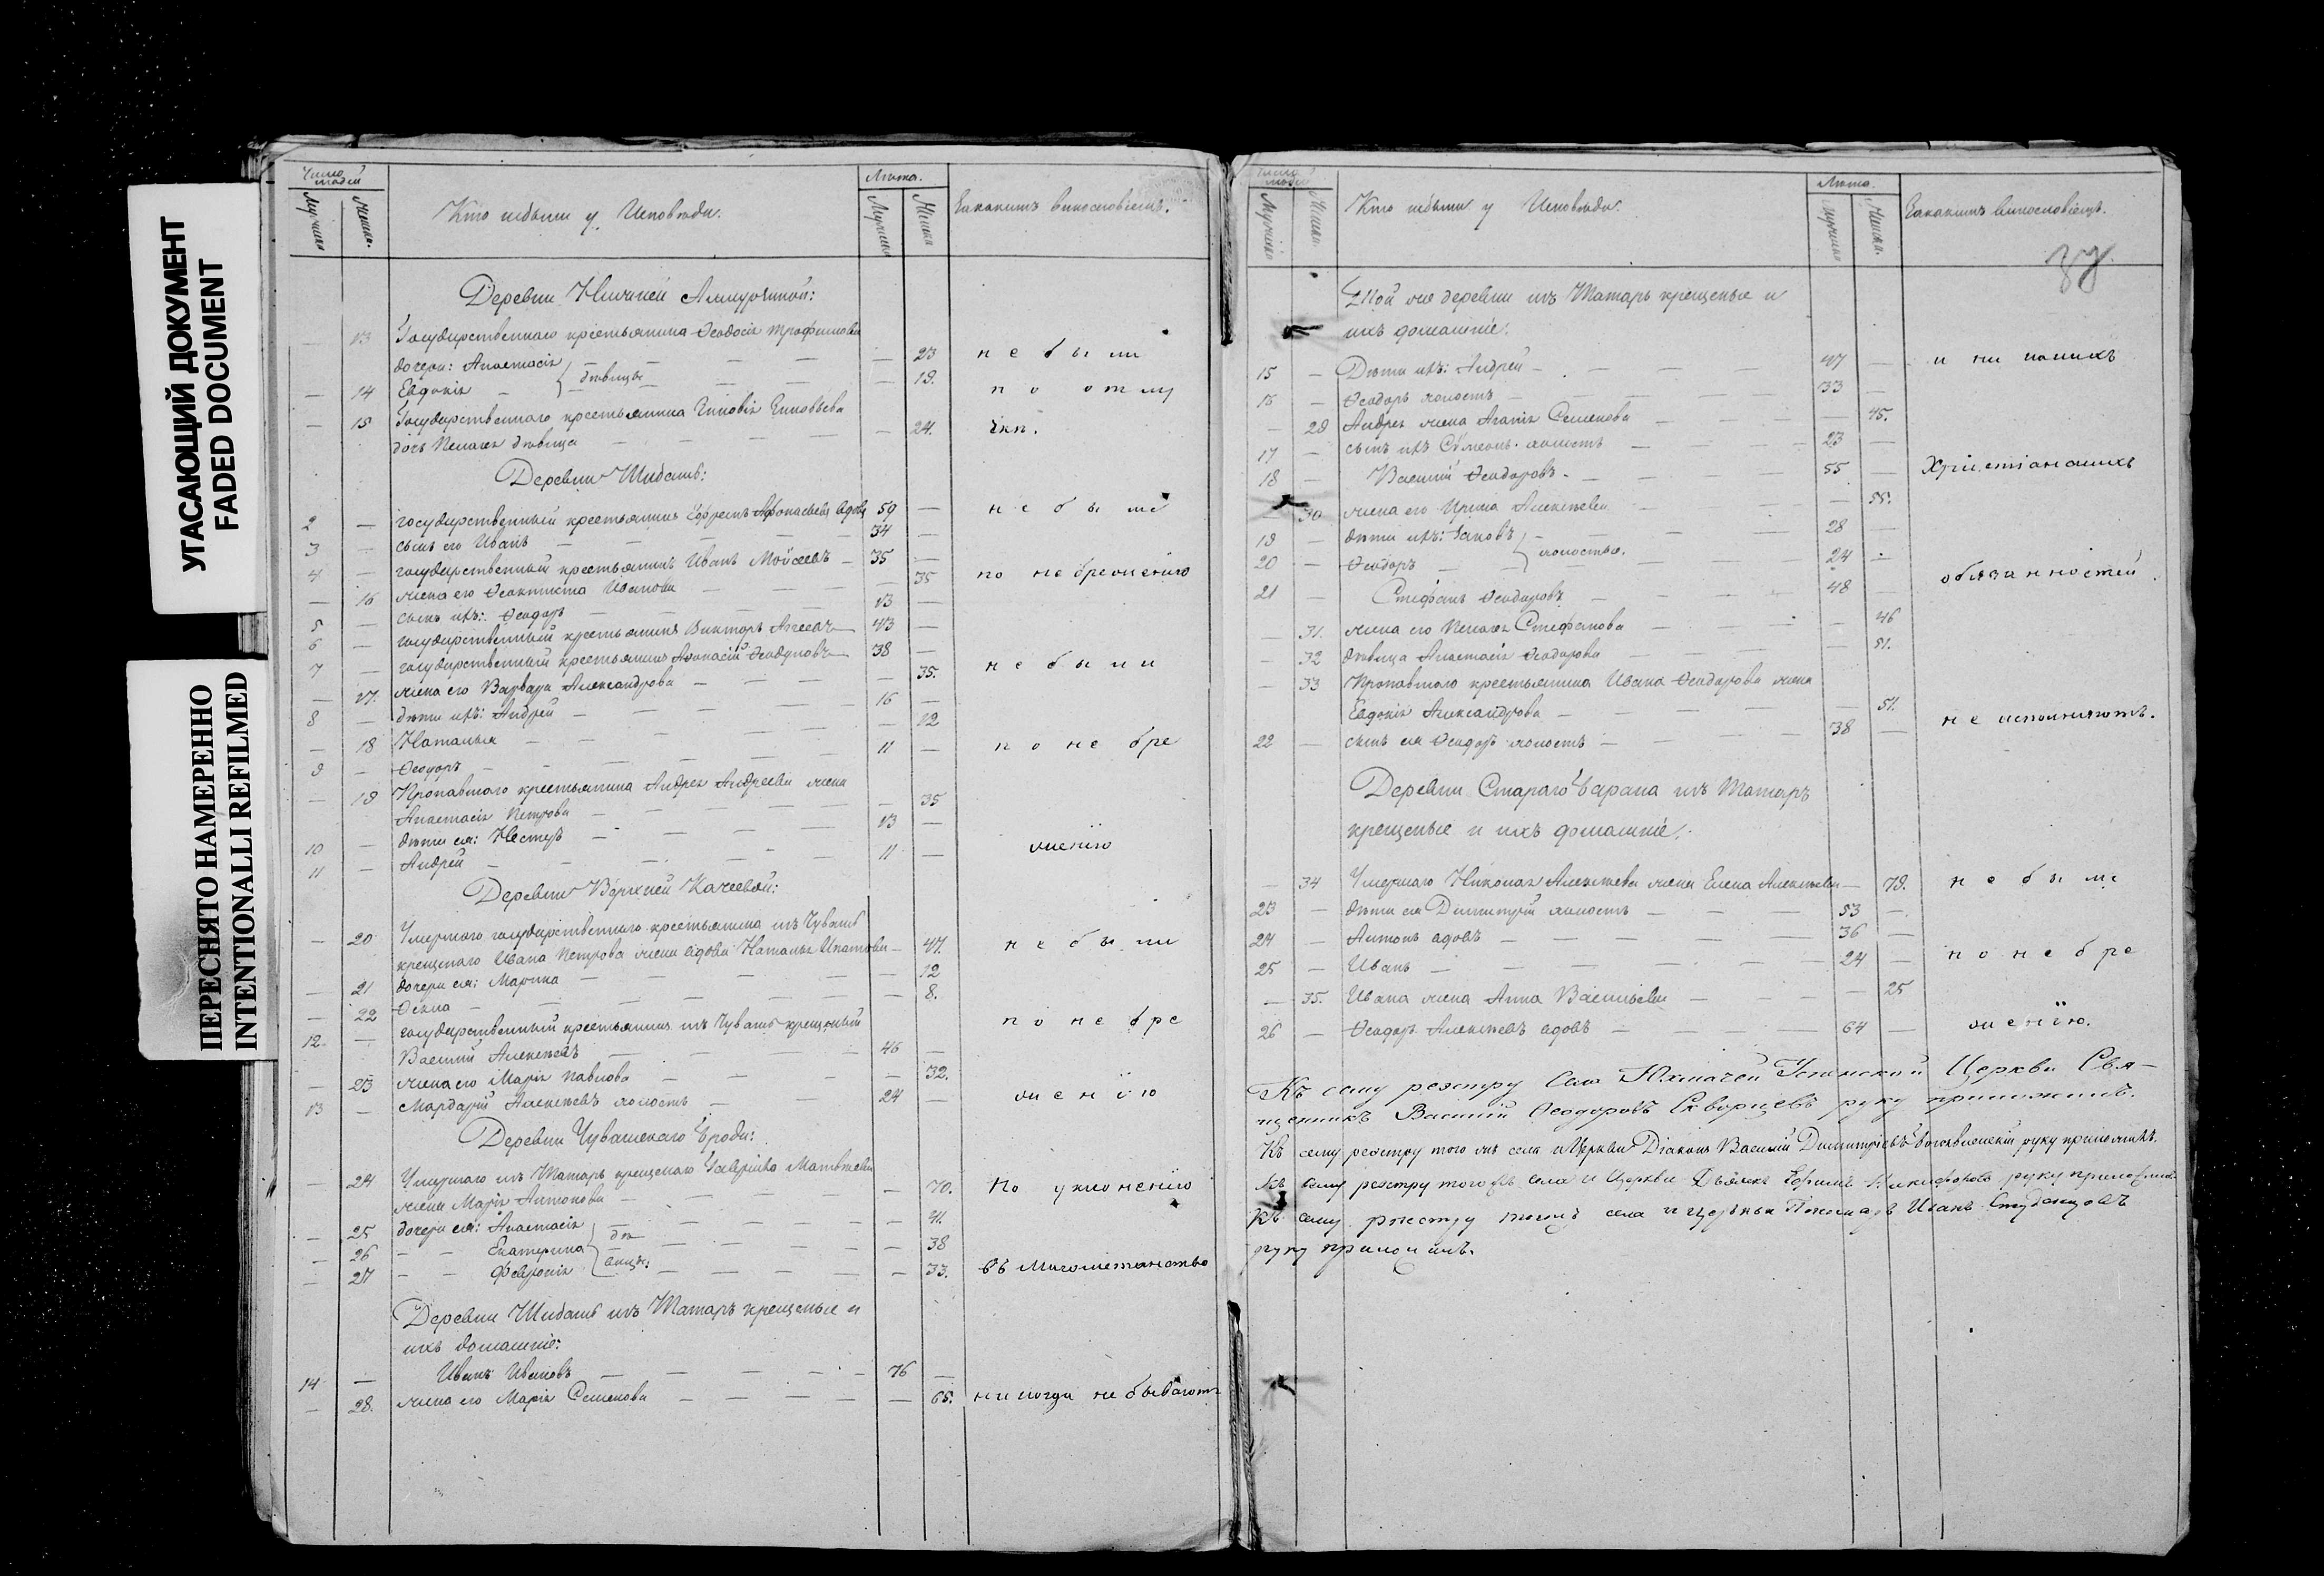 УГАСАЮЩИЙ ДОКУМЕНТ
FADED DOCUMENT
ПЕРЕСНЯТО НАМЕРЕННО
INTENTIONALLI REFILMED
Число людей
Мужчины Женска.
Кто небыли у Исповѣди.
Лѣта.
Мужчины Женски
За какимъ винословіемъ.
Деревни Нижней
— 13 Государственнаго крестьянина Ѳеодосія Трофимова
дочери: Анастасія — — — — 23 не были
— 14 Евдокія } дѣвицы — — — 19. по отлу
— 15 Государственнаго крестьянина Зиновія Зиновьева
дочь Пелагея дѣвица — — 24. чкѣ.
Деревни Шибашъ:
2 — государственный крестьянинъ Ефремъ Афонасьевъ вдовъ 59 — не были
3 — сынъ его Иванъ — 34 —
4 — государственный крестьянинъ Иванъ Мойсеевъ — 35 —
— 16 жена его Ѳеоктиста Иванова — 35 по небреженію
5 — сынъ ихъ: Ѳеодоръ — 13 —
6 — государственный крестьянинъ Викторъ Агеевъ — 43 —
7 — государственный крестьянинъ Афанасій — 38 —
— 17. жена его Варвара Александрова — — 35. не были
8 — дѣти ихъ: Андрей — 16 —
— 18 Наталья — — 12
9 — Ѳеодоръ — 11 — по не бре
— 19 Пропавшаго крестьянина Андрея Андреева жена
Анастасія Петрова — — 35
10 — дѣти ея: Несторъ — 13 —
11 — Андрей — 11 — женію
Деревни Верхней Качеевой:
— 20 Умершаго государственнаго крестьянина изъ Чувашъ
крещенаго Ивана Петрова жена вдова Наталья Игнатова — 47. не были
— 21 дочери ея: Марина — — 12
— 22 Ѳекла — — 8.
12. — государственный крестьянинъ изъ Чувашъ крещеный по не бре
Василій Алексѣевъ — 46 —
— 23 жена его Марія Павлова — — 32.
13 — Мардарій Алексѣевъ холостъ — 24 — женію
Деревни Чувашскаго Брода:
— 24 Умершаго изъ Татаръ крещенаго Матвѣева
жена Марія Антонова — — 70. По уклоненію
— 25 дочери ея: Анастасія } дѣ — — 41.
— 26 — — Екатерина — — 38
— 27 — — Февронія } вицы: — — 33. въ Магометанство
Деревни Шибашъ изъ Татаръ крещеные и
ихъ домашніе:
14 — Иванъ Ивановъ — 76 —
— 28. жена его Марія Семенова — — 65. никогда не бываютъ
Число людей
Мужчины Женски.
Кто небыли у Исповѣди.
Лѣта.
Мужчины Женски.
За какимъ винословіемъ.
Той же деревни изъ Татаръ крещеные и
ихъ домашніе.
15 — Дѣти ихъ: Андрей — 47 — и ни какихъ
16 — Ѳеодоръ холостъ — 33 —
— 29 Андрея жена Агапія Семенова — — 45.
17 — сынъ ихъ Сѵмеонъ холостъ — 23 —
18 — Василій Ѳеодоровъ — 55 — Христіанскихъ
— 30 жена его Ирина Алексѣева — — 55.
19 — дѣти ихъ: Іаковъ } — 28 —
20 — Ѳеодоръ — } холосты. — 24 — обязанностей
21 — Стефанъ Ѳеодоровъ — 48 —
— 31. жена его Пелагея Стефанова — — 46
— 32 дѣвица Анастасія Ѳеодорова — — 51.
— 33 Пропавшаго крестьянина Ивана Ѳеодорова жена
Евдокія Александрова — — 51.
22 — сынъ ея Ѳеодоръ холостъ — 38 — не исполняютъ.
Деревни Стараго Барана изъ Татаръ
крещеные и ихъ домашніе.
— 34 Умершаго Николая Алексѣева жена Елена Алексѣева — 79. не были
23 — дѣти ея Димитрій холостъ — 53 —
24 — Антонъ вдовъ — 36 —
25 — Иванъ — 24 — по не бре
— 35. Ивана жена Анна Васильева — — 25
26 — Ѳеодоръ Алексѣевъ вдовъ — 64 — женію.
Къ сему реэстру Села Юхмачей Успенской Церкви Свя-
щенникъ Василій Ѳеодоровъ Скворцевъ руку приложилъ.
Къ сему реэстру того же села и Церкви Діаконъ Василій Димитріевъ Богоявленскій руку приложилъ.
Къ сему реэстру того жъ села и Церкви Дьячекъ Ефимъ Никифоровъ руку приложилъ
Къ сему реэстру тогожъ села и церьквы Пономарь Иванъ Студенцовъ
руку приложилъ.